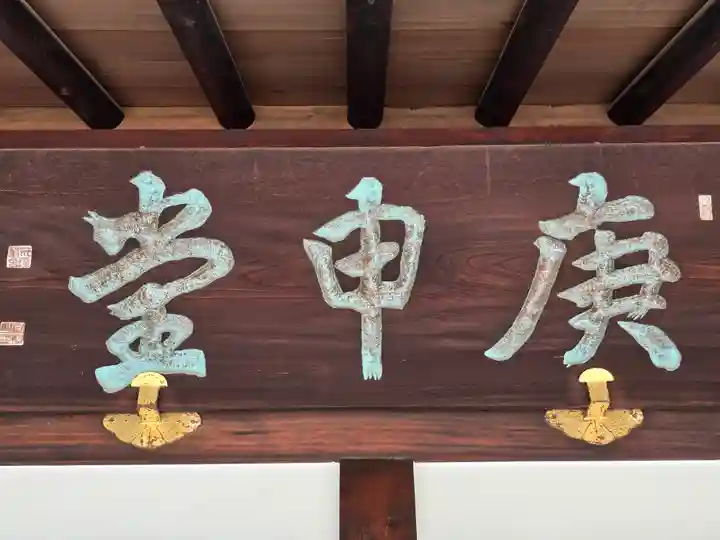 庚申堂